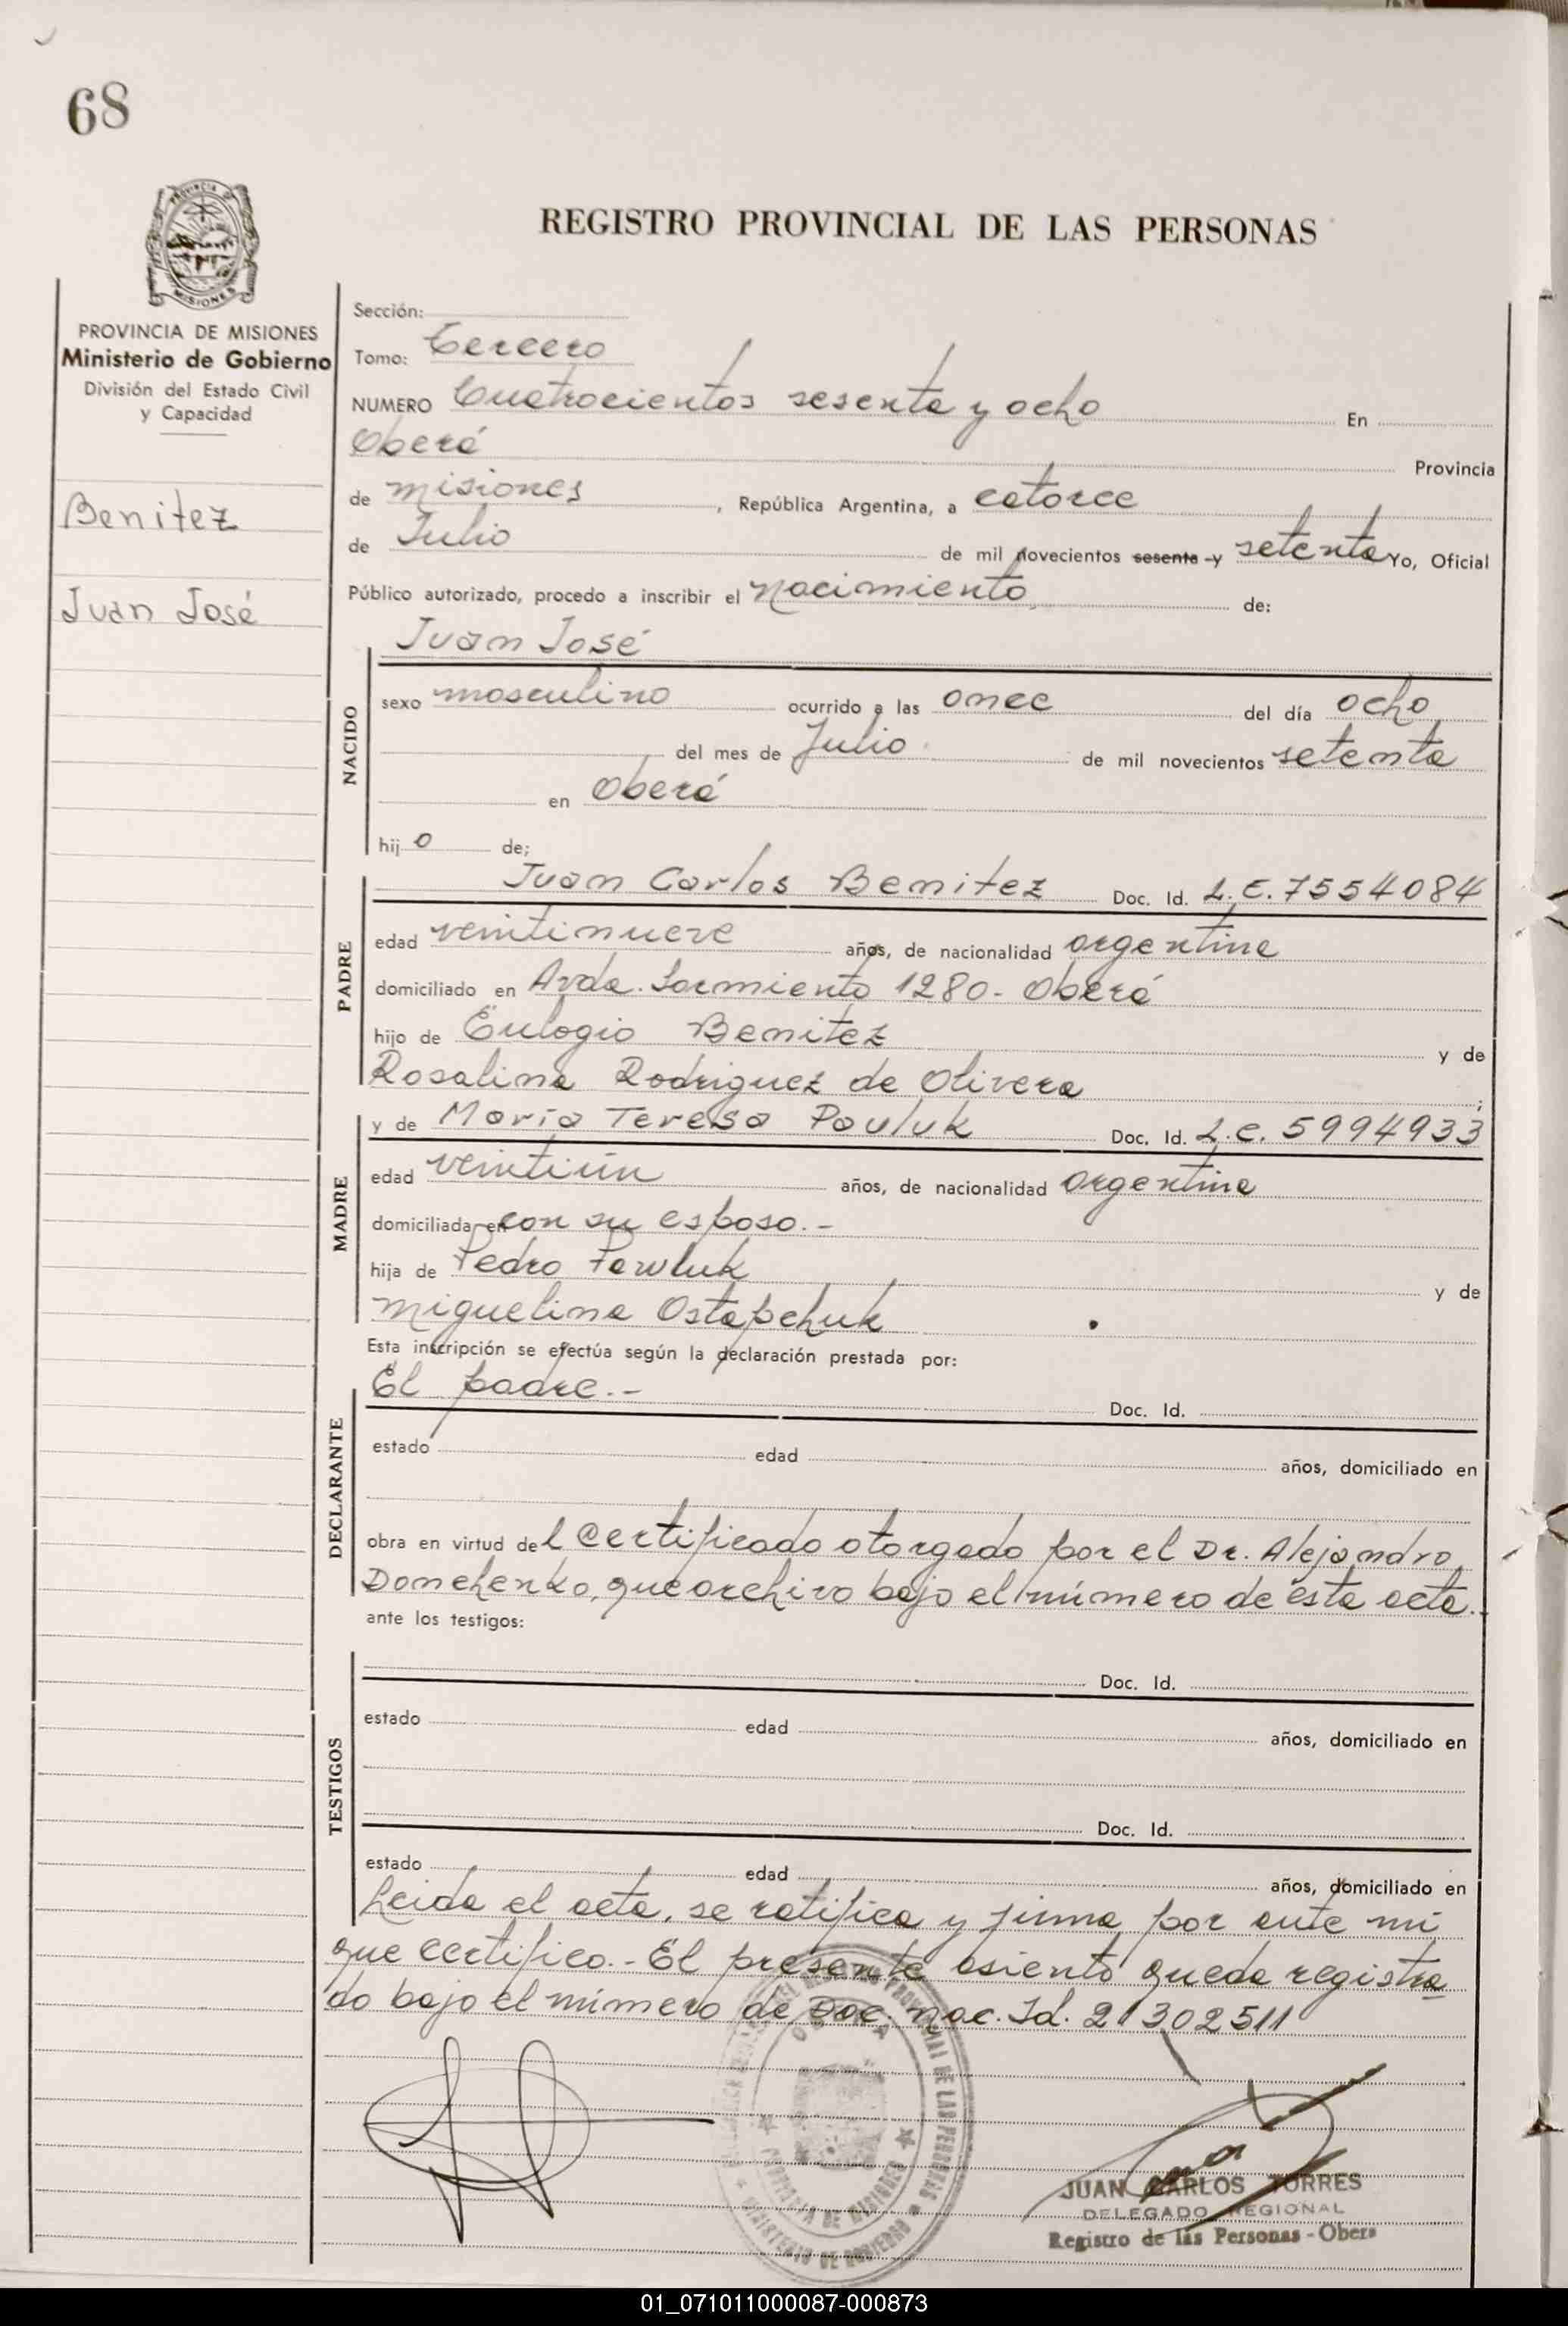 68
PROVINCIA DE
MISIONES
REGISTRO PROVINCIAL DE LAS PERSONAS
PROVINCIA DE MISIONES
Ministerio de Gobierno
División del Estado Civil
y Capacidad
Benitez
Juan José
Sección:
Tomo: Tercero
NUMERO Cuatrocientos sesenta y ocho En
Oberá Provincia
de Misiones, República Argentina, a catorce
de Julio de mil novecientos sesenta y setenta Yo, Oficial
Público autorizado, procedo a inscribir el nacimiento de:
Juan José
NACIDO
sexo masculino ocurrido a las once del día ocho
del mes de Julio de mil novecientos setenta
en Oberá
hijo de;
PADRE
Juan Carlos Benitez Doc. Id. L.E. 7554084
edad veintinueve años, de nacionalidad argentina
domiciliado en Avda. Sarmiento 1280- Oberá
hijo de Eulogio Benitez y de
Rosalina Rodriguez de Olivera ;
MADRE
y de María Teresa Pauluk Doc. Id. L.C. 5994933
edad veintiún años, de nacionalidad argentina
domiciliada en con su esposo.-
hija de Pedro Pawluk y de
Miguelina Ostapchuk
Esta inscripción se efectúa según la declaración prestada por:
DECLARANTE
El padre.- Doc. Id.
estado edad años, domiciliado en
obra en virtud del certificado otorgado por el Dr. Alejandro
Domchenko, que archivo bajo el número de esta acta.
ante los testigos:
TESTIGOS
Doc. Id.
estado edad años, domiciliado en
Doc. Id.
estado edad años, domiciliado en
Leida el acta, se ratifica y firma por ante mi
que certifico.- El presente asiento queda registra
do bajo el número de Doc. Nac. Id. 21302511
JUAN CARLOS TORRES
DELEGADO REGIONAL
Registro de las Personas - Oberá
01_071011000087-000873